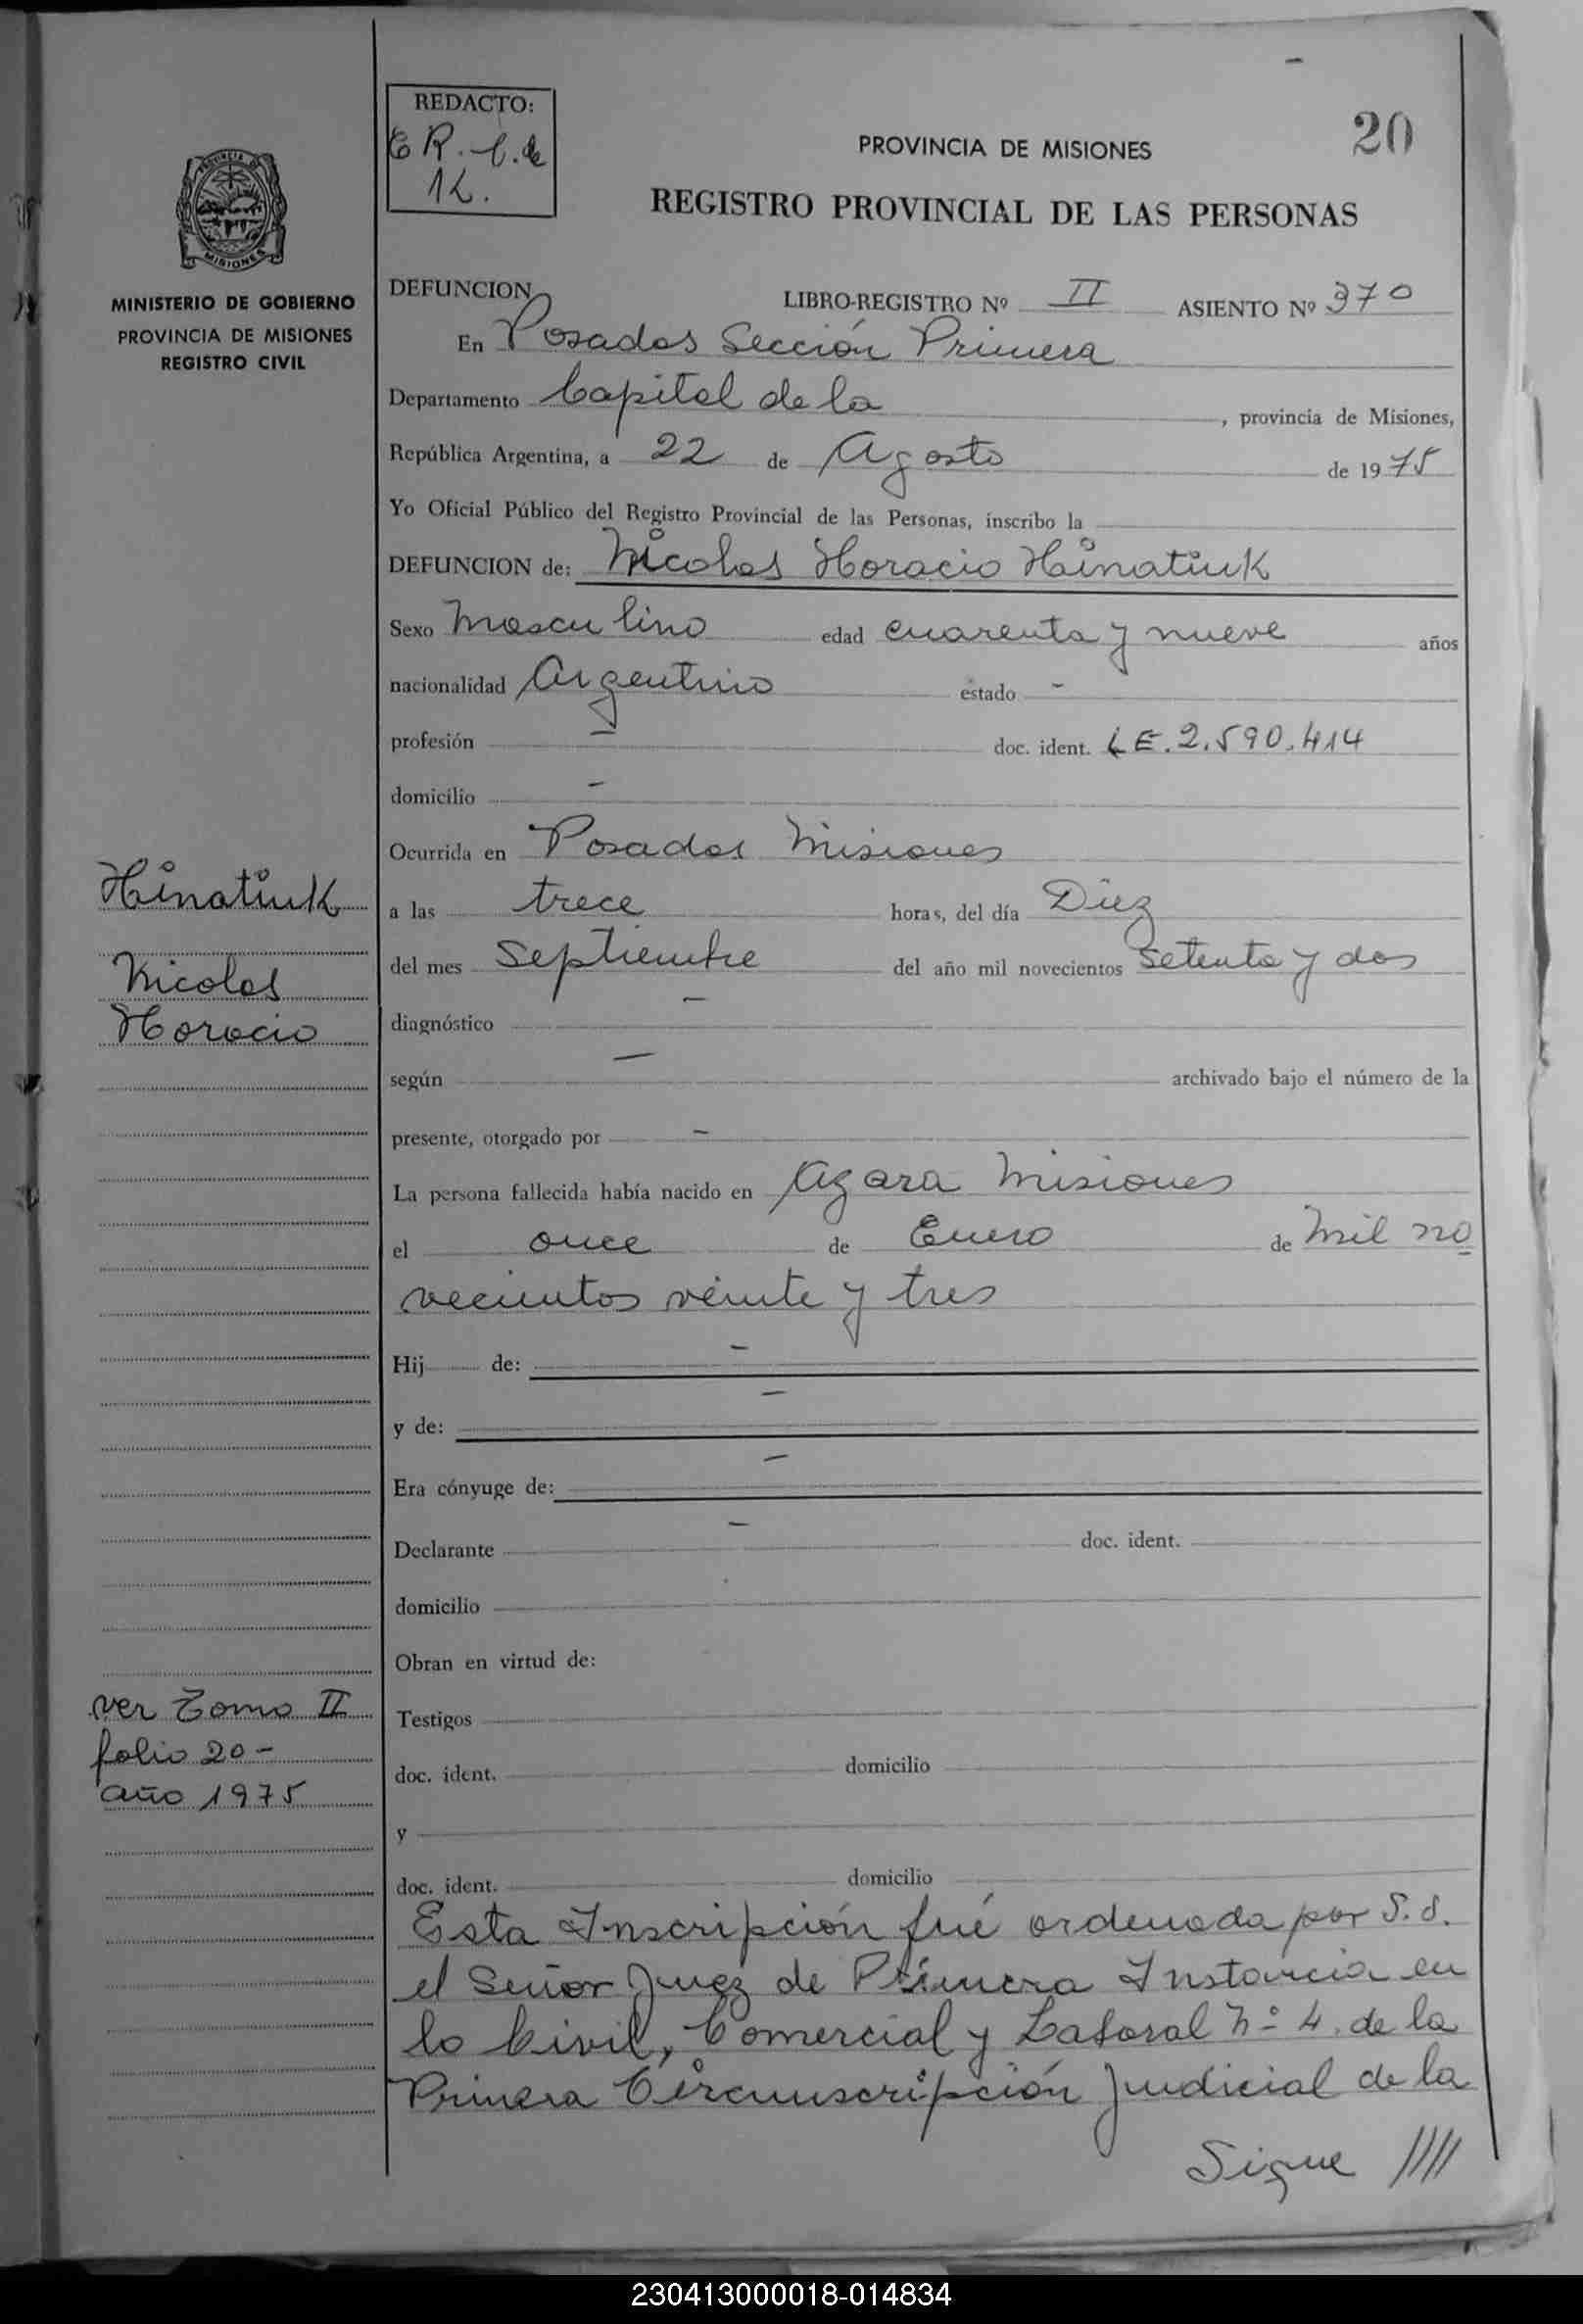 REDACTO:
E R. C. de
12.
20
PROVINCIA DE MISIONES
REGISTRO PROVINCIAL DE LAS PERSONAS
PROVINCIA DE
MISIONES
MINISTERIO DE GOBIERNO
PROVINCIA DE MISIONES
REGISTRO CIVIL
DEFUNCION
LIBRO-REGISTRO Nº II ASIENTO Nº 370
En Posadas Sección Primera
Departamento Capital de la , provincia de Misiones,
República Argentina, a 22 de Agosto de 1975
Yo Oficial Público del Registro Provincial de las Personas, inscribo la
DEFUNCION de: Nicolas Horacio Hinatiuk
Sexo Masculino edad cuarenta y nueve años
nacionalidad Argentino estado -
profesión - doc. ident. LE. 2.590.414
domicilio -
Ocurrida en Posadas Misiones
a las trece horas, del día Diez
del mes Septiembre del año mil novecientos setenta y dos
diagnóstico -
según - archivado bajo el número de la
presente, otorgado por -
La persona fallecida había nacido en Azara Misiones
el once de Enero de Mil no
vecientos veinte y tres
Hij de: -
y de: -
Era cónyuge de: -
Declarante - doc. ident.
domicilio
Obran en virtud de:
Testigos
doc. ident. domicilio
y
doc. ident. domicilio
Esta Inscripción fué ordenada por S.S.
el Señor Juez de Primera Instancia en
lo Civil, Comercial y Laboral Nº 4. de la
Primera Circunscripción Judicial de la
Sigue ////
Hinatiuk
Nicolas
Horacio
ver Tomo II
folio 20-
año 1975
230413000018-014834